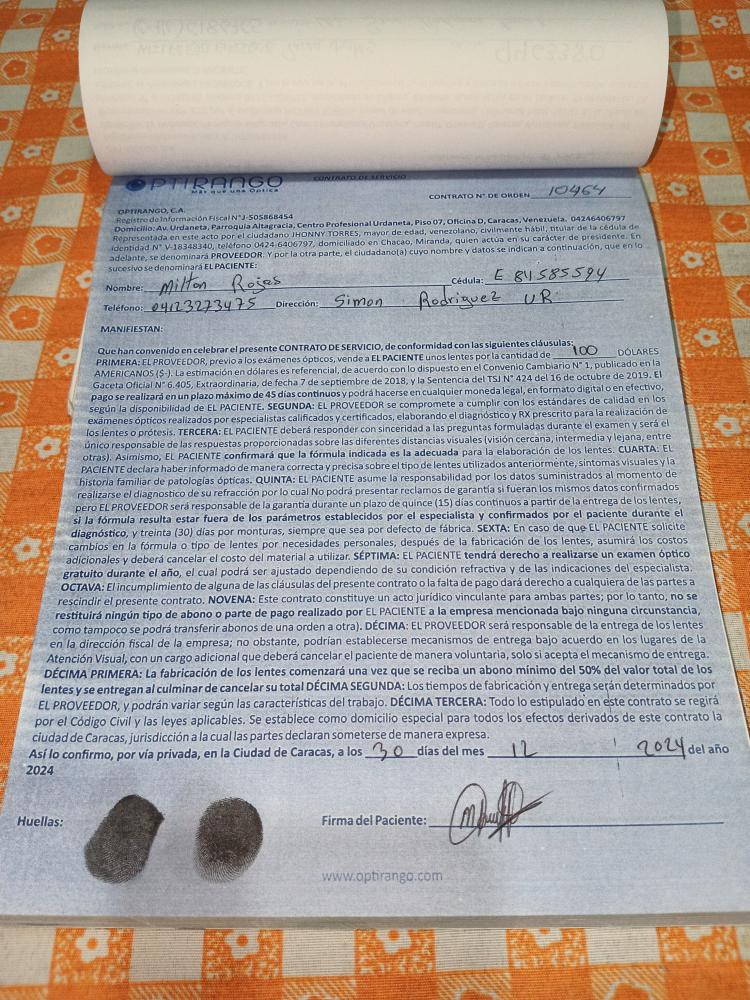 OPTIRANGO
Más que una Óptica
CONTRATO DE SERVICIO
CONTRATO N° DE ORDEN 10464
OPTIRANGO, C.A.
Registro de Información Fiscal N°J-505868454
Domicilio: Av. Urdaneta, Parroquia Altagracia, Centro Profesional Urdaneta, Piso 07, Oficina D, Caracas, Venezuela. 04246406797
Representada en este acto por el ciudadano JHONNY TORRES, mayor de edad, venezolano, civilmente hábil, titular de la cédula de
Identidad N° V-18348340, teléfono 0424-6406797, domiciliado en Chacao, Miranda, quien actúa en su carácter de presidente. En
adelante, se denominará PROVEEDOR. Y por la otra parte, el ciudadano(a) cuyo nombre y datos se indican a continuación, que en lo
sucesivo se denominará EL PACIENTE:
Nombre: Milton Rojas Cédula: E 84585594
Teléfono: 04123273475 Dirección: Simon Rodriguez UR
MANIFIESTAN:
Que han convenido en celebrar el presente CONTRATO DE SERVICIO, de conformidad con las siguientes cláusulas:
PRIMERA: EL PROVEEDOR, previo a los exámenes ópticos, vende a EL PACIENTE unos lentes por la cantidad de 100 DÓLARES
AMERICANOS ($-). La estimación en dólares es referencial, de acuerdo con lo dispuesto en el Convenio Cambiario N° 1, publicado en la
Gaceta Oficial N° 6.405, Extraordinaria, de fecha 7 de septiembre de 2018, y la Sentencia del TSJ N° 424 del 16 de octubre de 2019. El
pago se realizará en un plazo máximo de 45 días continuos y podrá hacerse en cualquier moneda legal, en formato digital o en efectivo,
según la disponibilidad de EL PACIENTE. SEGUNDA: EL PROVEEDOR se compromete a cumplir con los estándares de calidad en los
exámenes ópticos realizados por especialistas calificados y certificados, elaborando el diagnóstico y RX prescrito para la realización de
los lentes o prótesis. TERCERA: EL PACIENTE deberá responder con sinceridad a las preguntas formuladas durante el examen y será el
único responsable de las respuestas proporcionadas sobre las diferentes distancias visuales (visión cercana, intermedia y lejana, entre
otras). Asimismo, EL PACIENTE confirmará que la fórmula indicada es la adecuada para la elaboración de los lentes. CUARTA: EL
PACIENTE declara haber informado de manera correcta y precisa sobre el tipo de lentes utilizados anteriormente, síntomas visuales y la
historia familiar de patologías ópticas. QUINTA: EL PACIENTE asume la responsabilidad por los datos suministrados al momento de
realizarse el diagnostico de su refracción por lo cual No podrá presentar reclamos de garantía si fueran los mismos datos confirmados
pero EL PROVEEDOR será responsable de la garantía durante un plazo de quince (15) días continuos a partir de la entrega de los lentes,
si la fórmula resulta estar fuera de los parámetros establecidos por el especialista y confirmados por el paciente durante el
diagnóstico, y treinta (30) días por monturas, siempre que sea por defecto de fábrica. SEXTA: En caso de que EL PACIENTE solicite
cambios en la fórmula o tipo de lentes por necesidades personales, después de la fabricación de los lentes, asumirá los costos
adicionales y deberá cancelar el costo del material a utilizar. SÉPTIMA: EL PACIENTE tendrá derecho a realizarse un examen óptico
gratuito durante el año, el cual podrá ser ajustado dependiendo de su condición refractiva y de las indicaciones del especialista.
OCTAVA: El incumplimiento de alguna de las cláusulas del presente contrato o la falta de pago dará derecho a cualquiera de las partes a
rescindir el presente contrato. NOVENA: Este contrato constituye un acto jurídico vinculante para ambas partes; por lo tanto, no se
restituirá ningún tipo de abono o parte de pago realizado por EL PACIENTE a la empresa mencionada bajo ninguna circunstancia,
como tampoco se podrá transferir abonos de una orden a otra). DÉCIMA: EL PROVEEDOR será responsable de la entrega de los lentes
en la dirección fiscal de la empresa; no obstante, podrían establecerse mecanismos de entrega bajo acuerdo en los lugares de la
Atención Visual, con un cargo adicional que deberá cancelar el paciente de manera voluntaria, solo si acepta el mecanismo de entrega.
DÉCIMA PRIMERA: La fabricación de los lentes comenzará una vez que se reciba un abono mínimo del 50% del valor total de los
lentes y se entregan al culminar de cancelar su total DÉCIMA SEGUNDA: Los tiempos de fabricación y entrega serán determinados por
EL PROVEEDOR, y podrán variar según las características del trabajo. DÉCIMA TERCERA: Todo lo estipulado en este contrato se regirá
por el Código Civil y las leyes aplicables. Se establece como domicilio especial para todos los efectos derivados de este contrato la
ciudad de Caracas, jurisdicción a la cual las partes declaran someterse de manera expresa.
Así lo confirmo, por vía privada, en la Ciudad de Caracas, a los 30 días del mes 12 2024 del año
2024
Huellas:
Firma del Paciente:
www.optirango.com